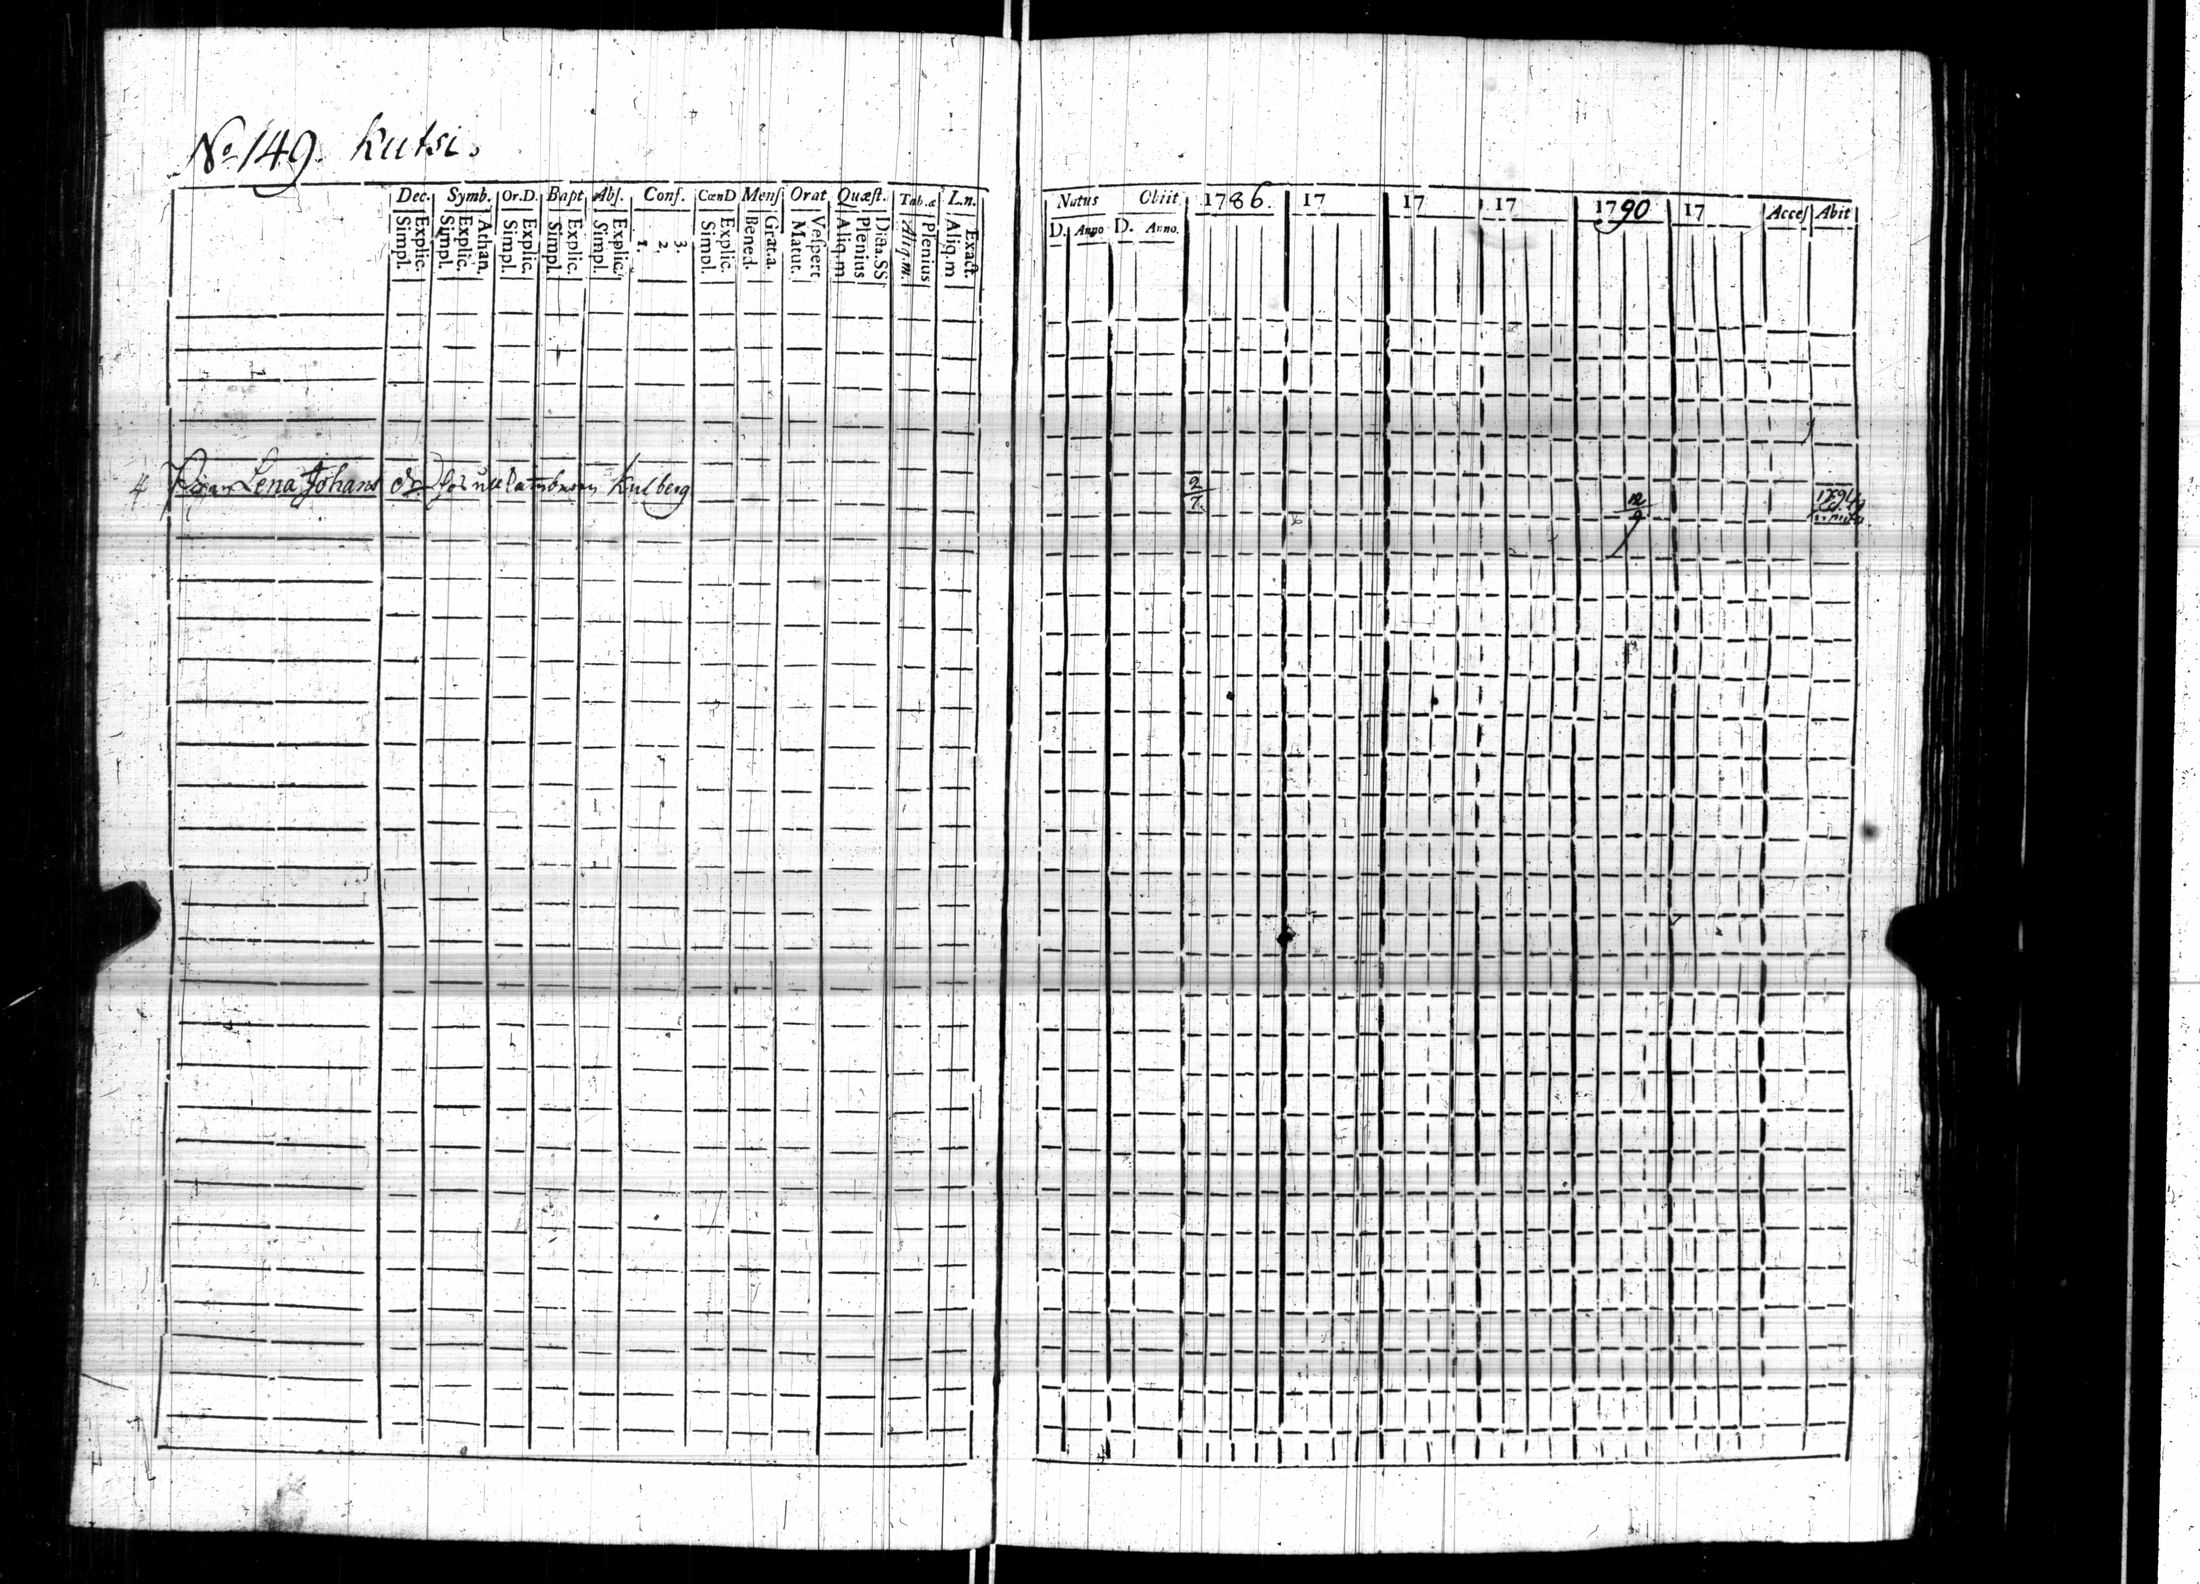 No 149. Kutsi.
Dec. Symb. Or.D. Bapt Abs. Conf. CœnD Mens Orat Quæst. Tab.æ L.n.
Explic. Simpl. Athan. Explic. Simpl. Explic. Simpl. Explic. Simpl. Explic. Simpl. 3. 2. 1. Explic. Simpl. Grat.a. Bened. Vespert Matut. Dicta.SS Plenius Aliq.m Plenius Aliq.m. Exact. Aliq.m
Natus Obiit 1786. 17 17 17 1790 17 Acces Abit
D. Anno D. Anno.
Lena Johans dr Kulberg 2/7 12/9